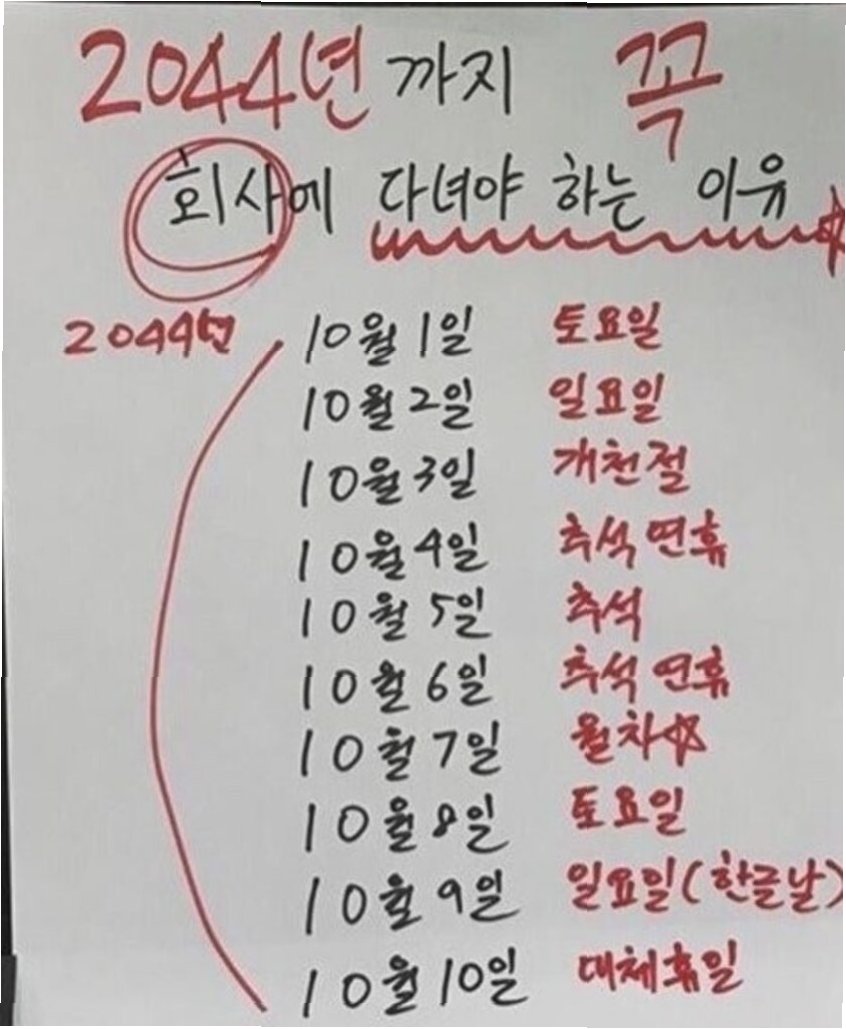 2044년 까지 꼭
회사에 다녀야 하는 이유
2044년 10월 1일 토요일
10월 2일 일요일
10월 3일 개천절
10월 4일 추석 연휴
10월 5일 추석
10월 6일 추석 연휴
10월 7일 월차☆
10월 8일 토요일
10월 9일 일요일(한글날)
10월 10일 대체휴일